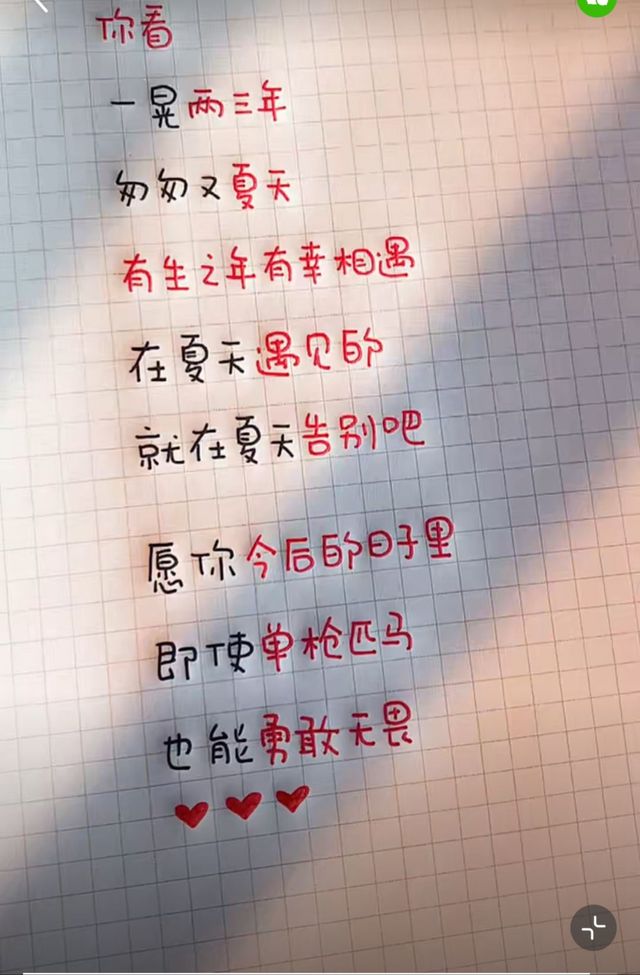 你看
一晃两三年
匆匆又夏天
有生之年有幸相遇
在夏天遇见的
就在夏天告别吧
愿你今后的日子里
即使单枪匹马
也能勇敢无畏